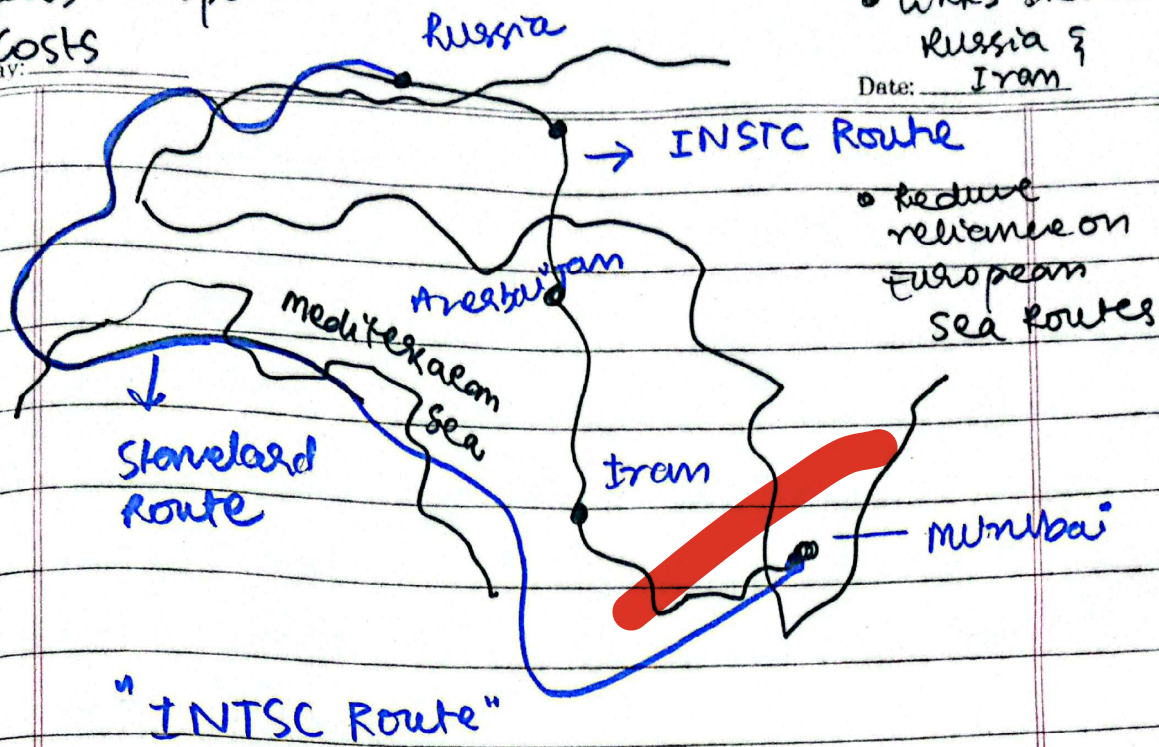 Costs
Russia
Russia &
Iran
Date:
→ INSTC Route
• Reduce
reliance on
European
Sea Routes
Azerbaijan
Mediterraean
Sea
Standard
Route
Iran
Mumbai
"INTSC Route"